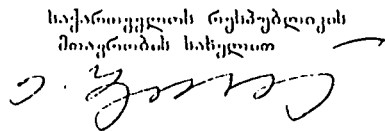 საქართველოს რესპუბლიკის
მთავრობის სახელით